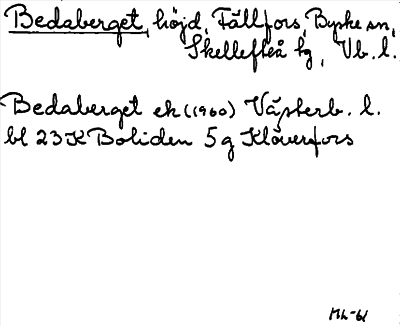 Bedaberget, höjd, Fällfors, Byske sn,
Skellefteå kg, Vb. l.
Bedaberget ek (1960) Västerb. l.
bl 23 K Boliden 5 g Klöverfors